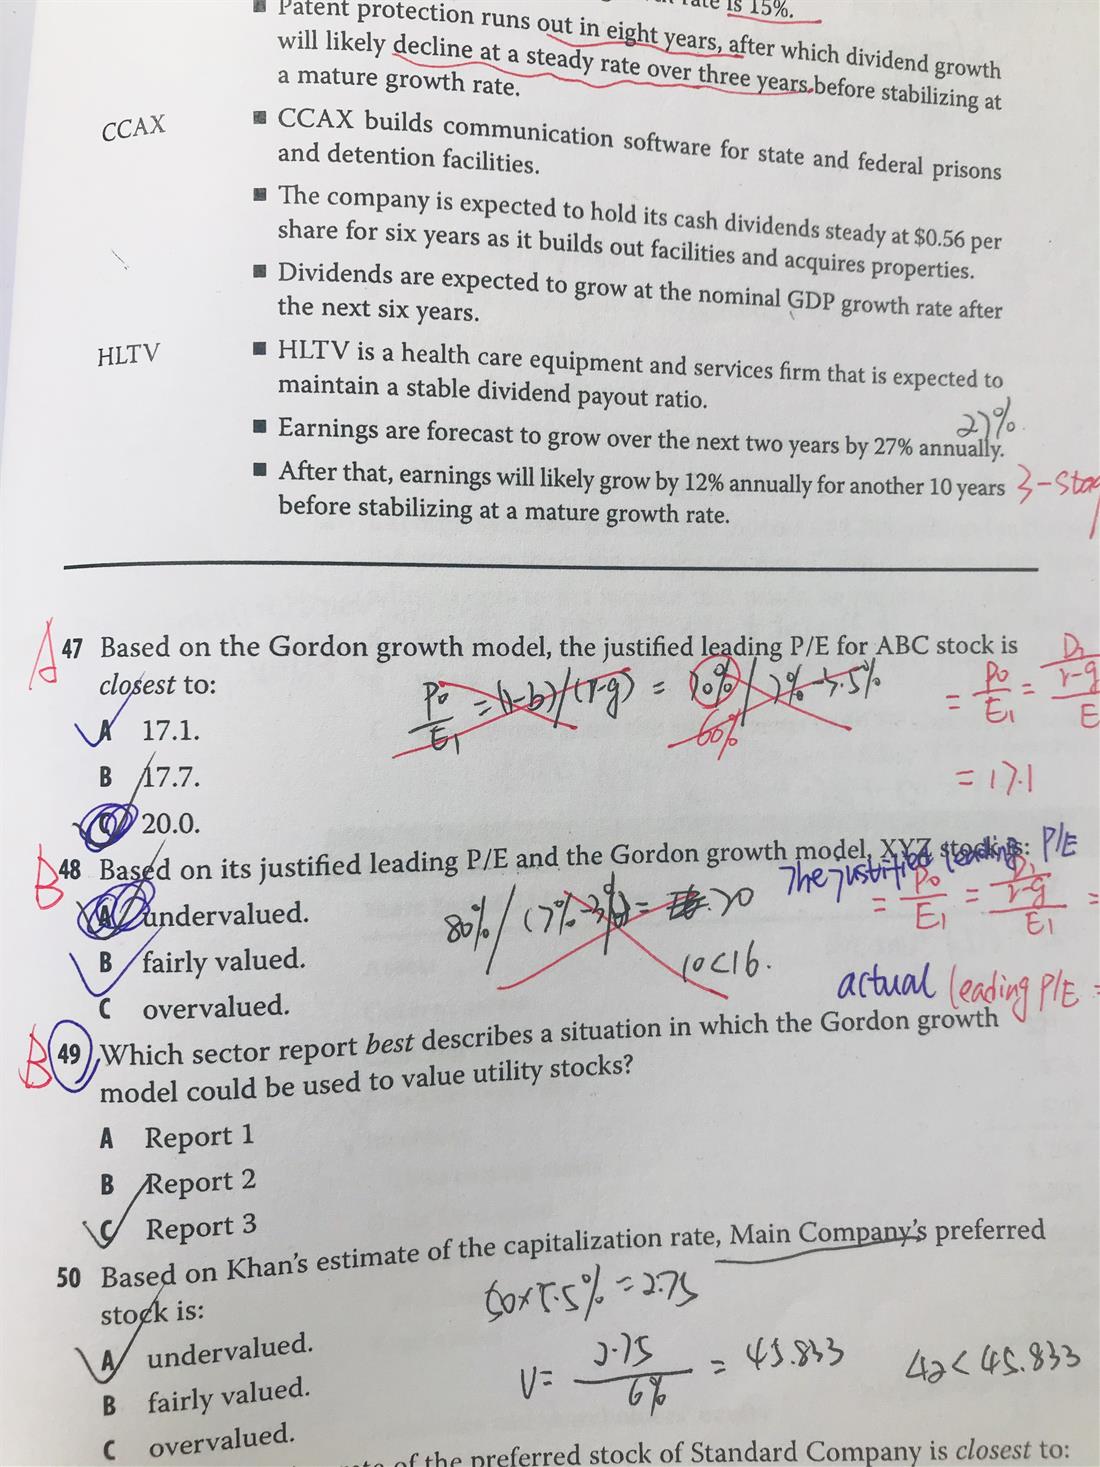 rate is 15%.
Patent protection runs out in eight years, after which dividend growth
will likely decline at a steady rate over three years before stabilizing at
a mature growth rate.
CCAX
CCAX builds communication software for state and federal prisons
and detention facilities.
The company is expected to hold its cash dividends steady at $0.56 per
share for six years as it builds out facilities and acquires properties.
Dividends are expected to grow at the nominal GDP growth rate after
the next six years.
HLTV
HLTV is a health care equipment and services firm that is expected to
maintain a stable dividend payout ratio.
27%.
Earnings are forecast to grow over the next two years by 27% annually.
After that, earnings will likely grow by 12% annually for another 10 years 3-stag
before stabilizing at a mature growth rate.
A 47 Based on the Gordon growth model, the justified leading P/E for ABC stock is
closest to:
P0/E1 = (1-b)/(r-g) = 70%/7%-3.5%
60%
= P0/E1 = D1/r-g/E
A 17.1.
= 17.1
B 17.7.
C 20.0.
B 48 Based on its justified leading P/E and the Gordon growth model, XYZ stock is:
The justified leading P/E
A undervalued.
80%/(7%-3%)= 20
= P0/E1 = D1/r-g/E1 =
10<16.
B fairly valued.
actual leading P/E =
C overvalued.
B 49 Which sector report best describes a situation in which the Gordon growth
model could be used to value utility stocks?
A Report 1
B Report 2
C Report 3
50 Based on Khan's estimate of the capitalization rate, Main Company's preferred
stock is:
50×5.5%=2.75
A undervalued.
V= 2.75/6% = 45.833
42<45.833
B fairly valued.
C overvalued.
of the preferred stock of Standard Company is closest to: